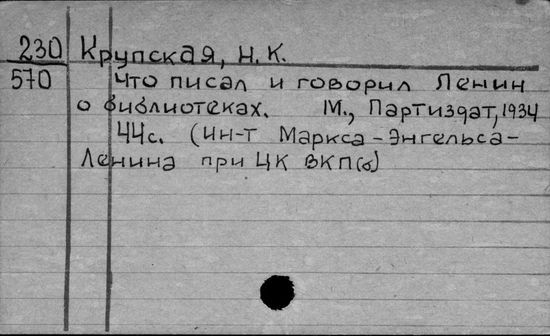 230 Крупская, Н. К.
570 Что писал и говорил Ленин
о библиотеках. М., Партиздат, 1934
44с. (Ин-т Маркса-Энгельса-
Ленина при ЦК ВКП(б)